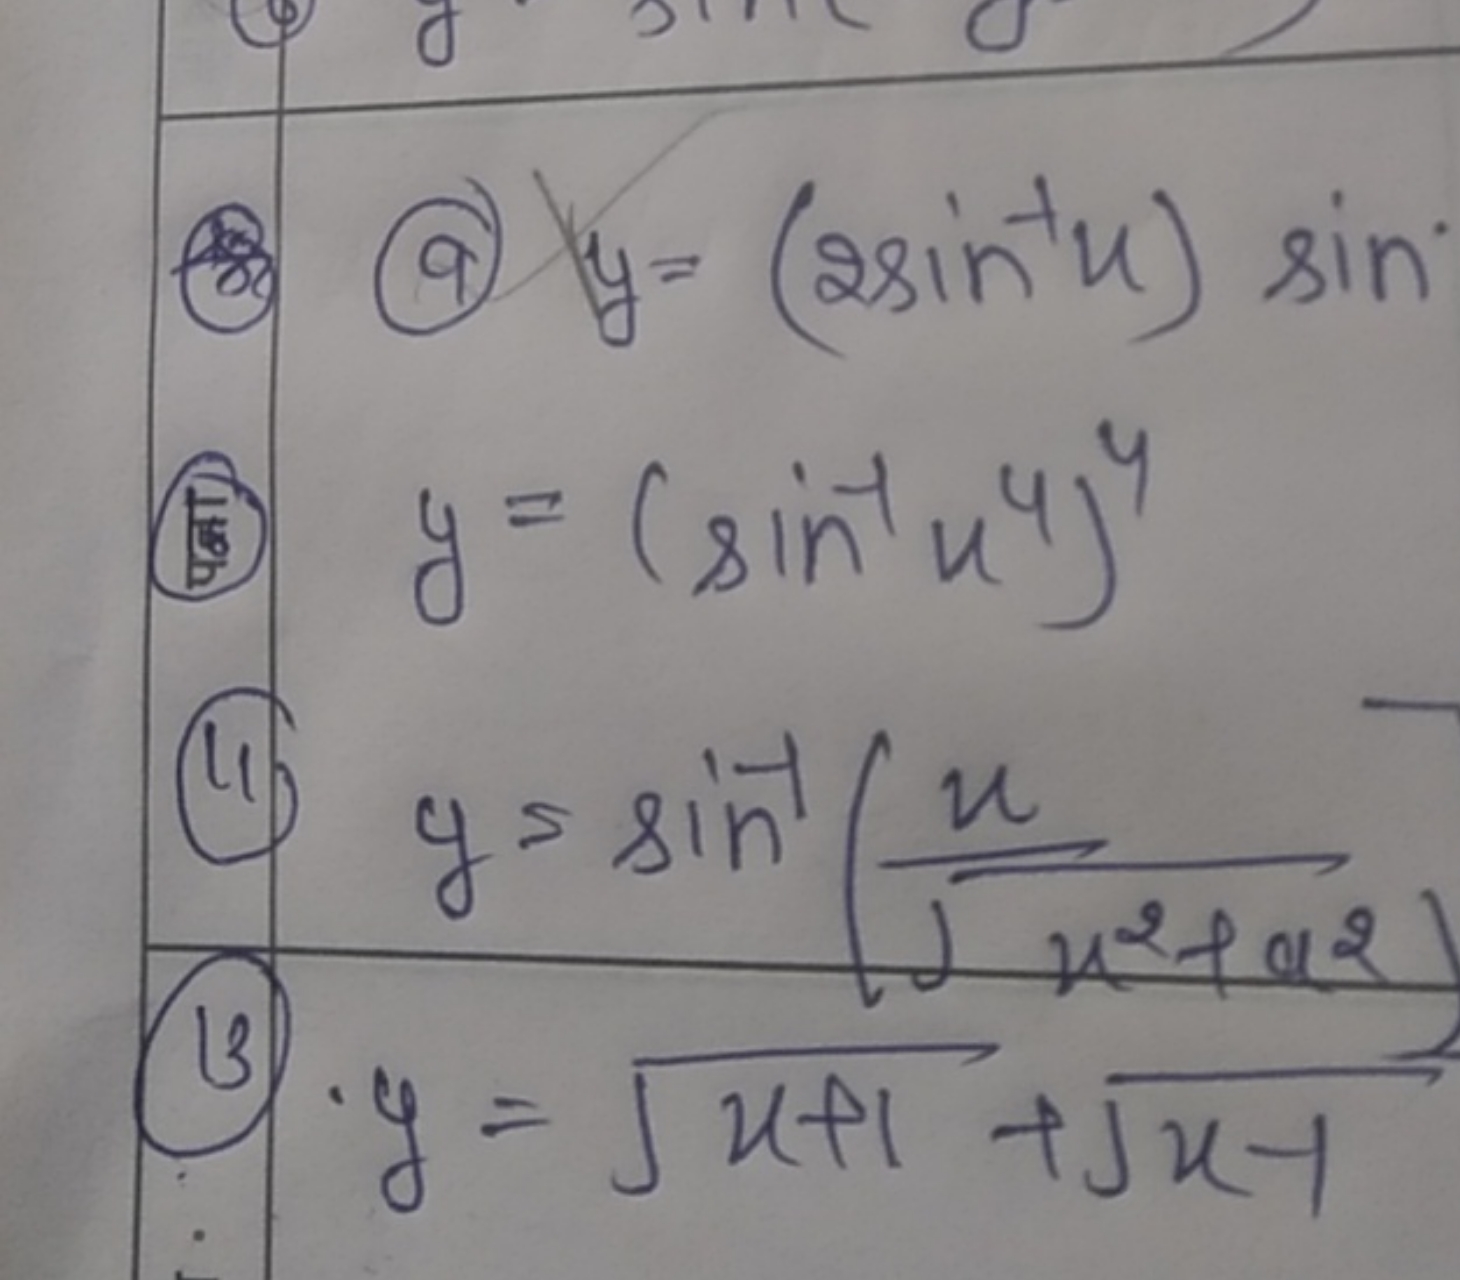 y = sin
(9) y = (2sin⁻¹x) sin
पन्ना y = (sin⁻¹ x⁴)⁴
11 y = sin⁻¹ (x / √(x²+a²))
13 y = √(x+1) + √(x-1)